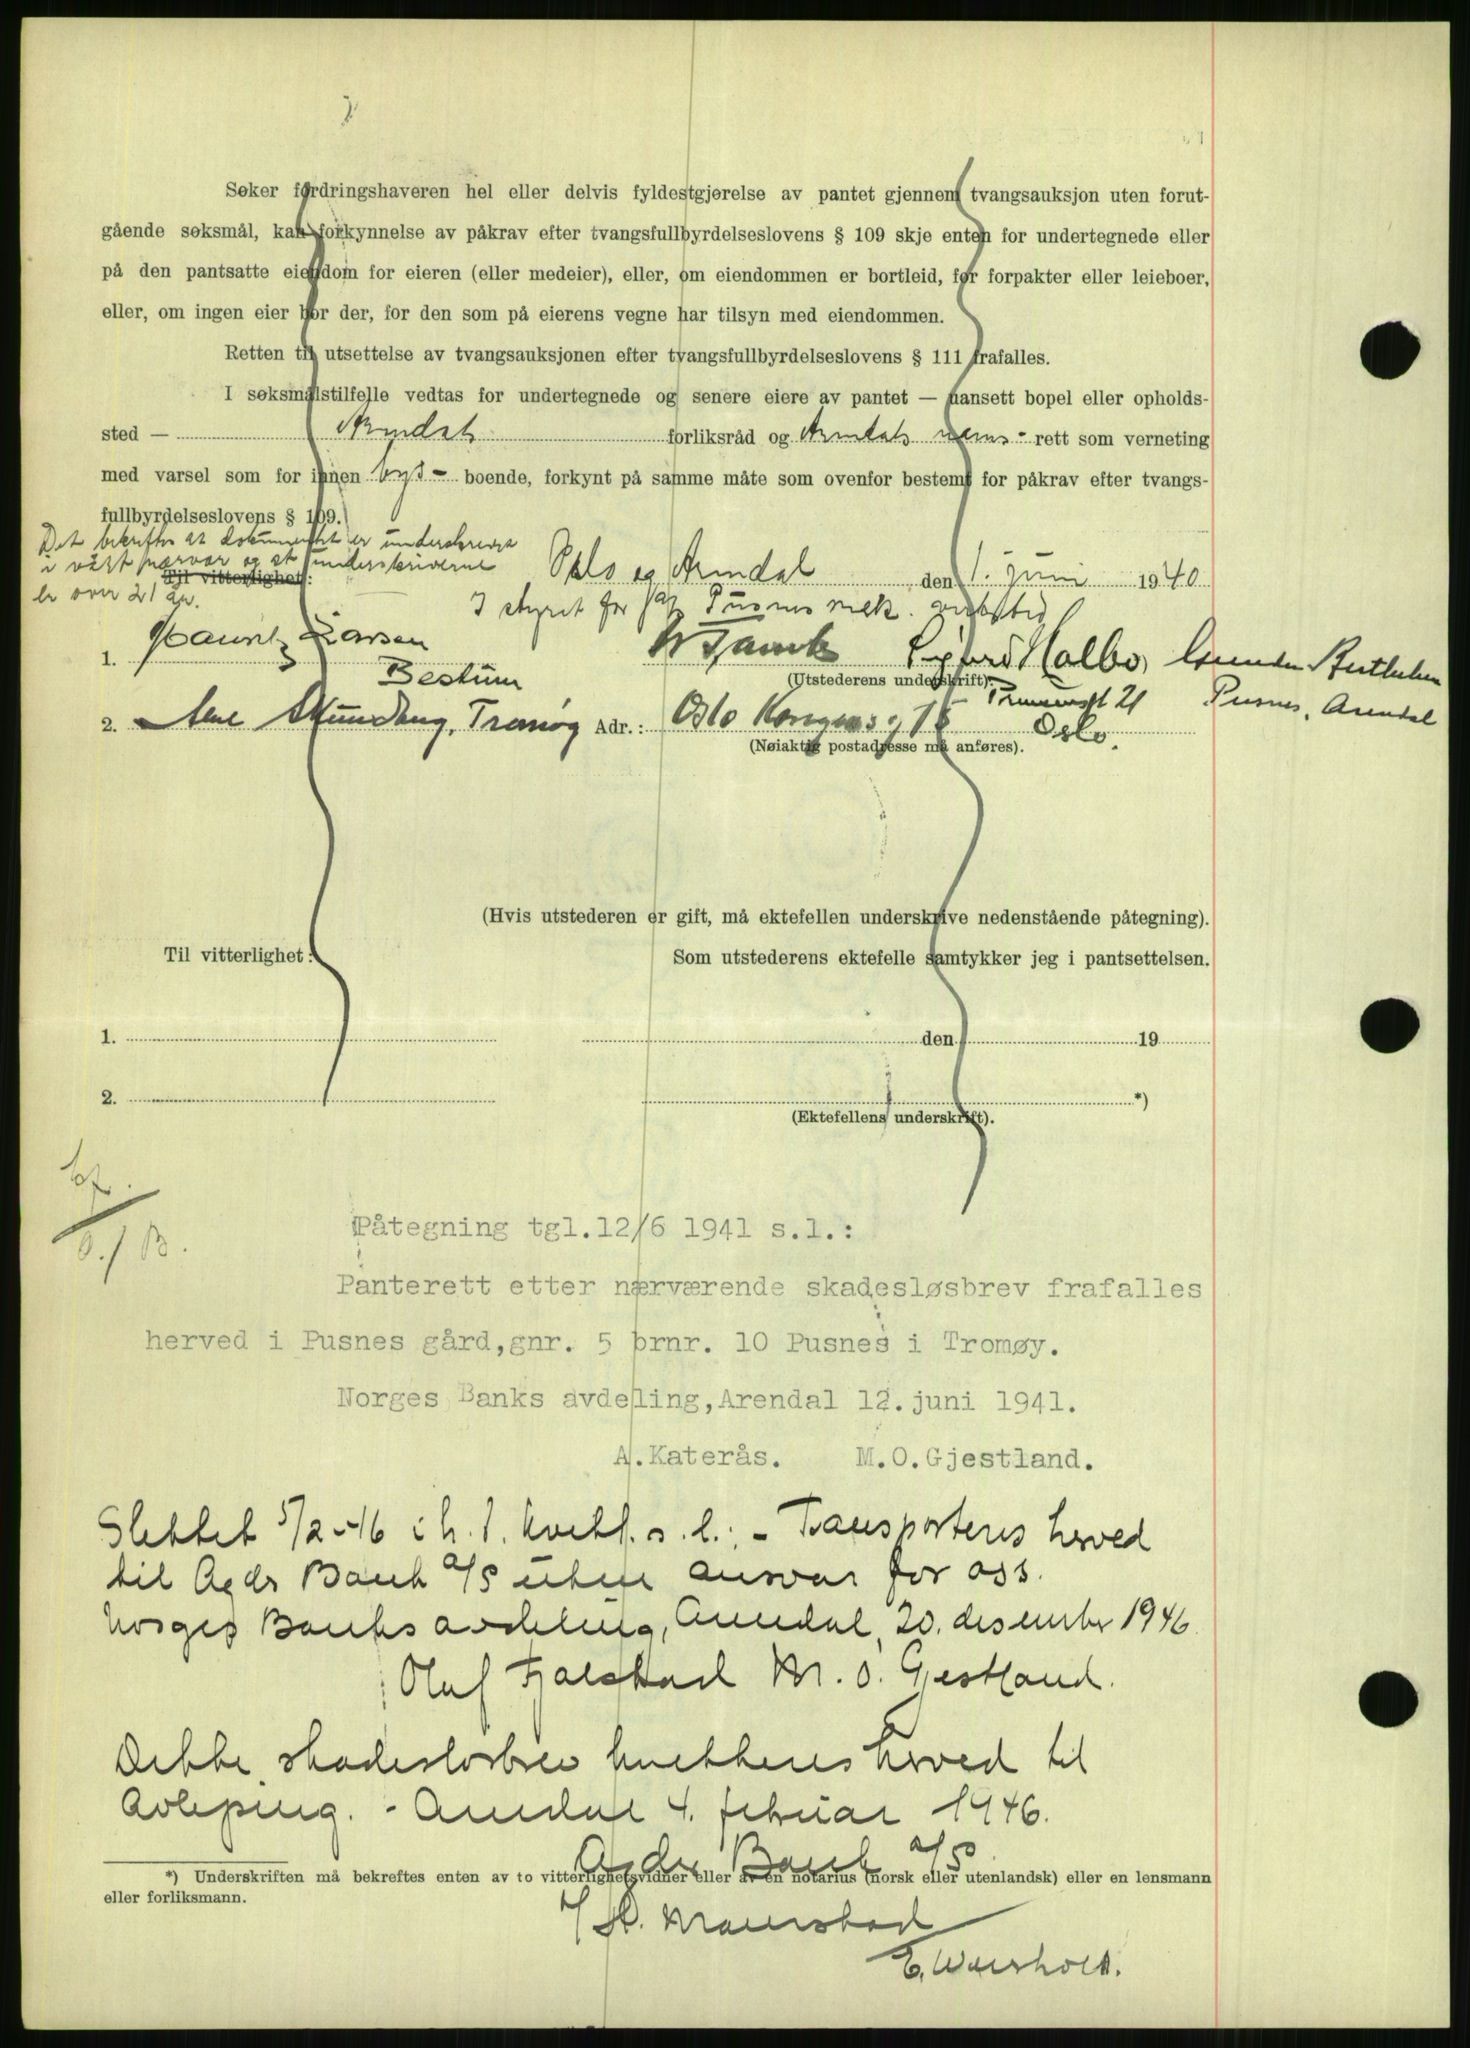 Søker fordringshaveren hel eller delvis fyldestgjørelse av pantet gjennem tvangsauksjon uten forut-
gående søksmål, kan forkynnelse av påkrav efter tvangsfullbyrdelseslovens § 109 skje enten for undertegnede eller
på den pantsatte eiendom for eieren (eller medeier), eller, om eiendommen er bortleid, for forpakter eller leieboer,
eller, om ingen eier bor der, for den som på eierens vegne har tilsyn med eiendommen.
Retten til utsettelse av tvangsauksjonen efter tvangsfullbyrdelseslovens § 111 frafalles.
I søksmålstilfelle vedtas for undertegnede og senere eiere av pantet — uansett bopel eller opholds-
sted — Arendals forliksråd og Arendals herreds- rett som verneting
med varsel som for innen bys - boende, forkynt på samme måte som ovenfor bestemt for påkrav efter tvangs-
fullbyrdelseslovens § 109.
Det bekreftes at dokumentet er underskrevet
i vårt nærvær og at underskriverne
Til vitterlighet:
er over 21 år.
Oslo og Arendal den 1. juni 1940
I styret for A/S Pusnes mek. verksted
1. Hauritz Larsen
Bestum
Sigurd Halbo, Gunder Berthelsen
(Utstederens underskrift).
21 Pusnes, Arendal
2. Skundberg, Tromøy Adr.: Oslo Kongens g 15 Oslo.
(Nøiaktig postadresse må anføres).
(Hvis utstederen er gift, må ektefellen underskrive nedenstående påtegning).
Til vitterlighet: Som utstederens ektefelle samtykker jeg i pantsettelsen.
1. den 19
2. *)
(Ektefellens underskrift).
Påtegning tgl.12/6 1941 s.l.:
Panterett etter nærværende skadesløsbrev frafalles
herved i Pusnes gård,gnr. 5 brnr. 10 Pusnes i Tromøy.
Norges Banks avdeling,Arendal 12.juni 1941.
A.Katerås. M.O.Gjestland.
Slettet 5/2-46 i h. t. kvitt. s. l.: - Transporteres herved
til Agder Bank A/S uten ansvar for oss.
Norges Banks avdeling, Arendal, 20. desember 1946
Olaf Fjalstad M. O. Gjestland.
Dette skadesløsbrev kvitteres herved til
avlysning. - Arendal 4. februar 1946.
Agder Bank A/S
*) Underskriften må bekreftes enten av to vitterlighetsvidner eller av en notarius (norsk eller utenlandsk) eller en lensmann
eller forliksmann.